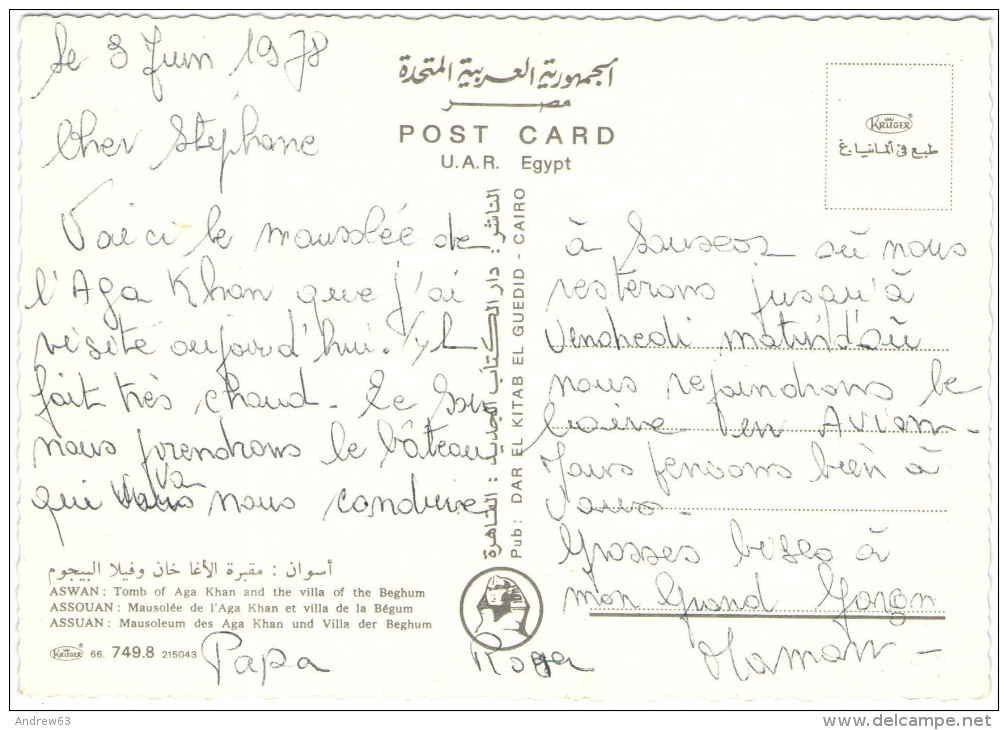 le 8 Juin 1978
Cher Stéphane
Voici le mausolée de
l'Aga Khan que j'ai
visité aujourd'hui. Il
fait très chaud. Ce soir
nous prendrons le bâteau
qui va nous conduire
الجمهورية العربية المتحدة
مصر
POST CARD
U.A.R. Egypt
KRÜGER
طبع في ألمانيا.غ
الناشر : دار الكتاب الجديد : القاهرة
Pub: DAR EL KITAB EL GUEDID - CAIRO
à où nous
resterons jusqu'à
Vendredi matin d'où
nous rejoindrons le
Caire en Avion.
Nous pensons bien à
vous.
Grosses bises à
mon Grand Garçon
Maman
أسوان : مقبرة الأغا خان وفيلا البيجوم
ASWAN : Tomb of Aga Khan and the villa of the Beghum
ASSOUAN : Mausolée de l'Aga Khan et villa de la Bégum
ASSUAN : Mausoleum des Aga Khan und Villa der Beghum
KRÜGER 66. 749.8 215043
Papa
Andrew63
www.delcampe.net